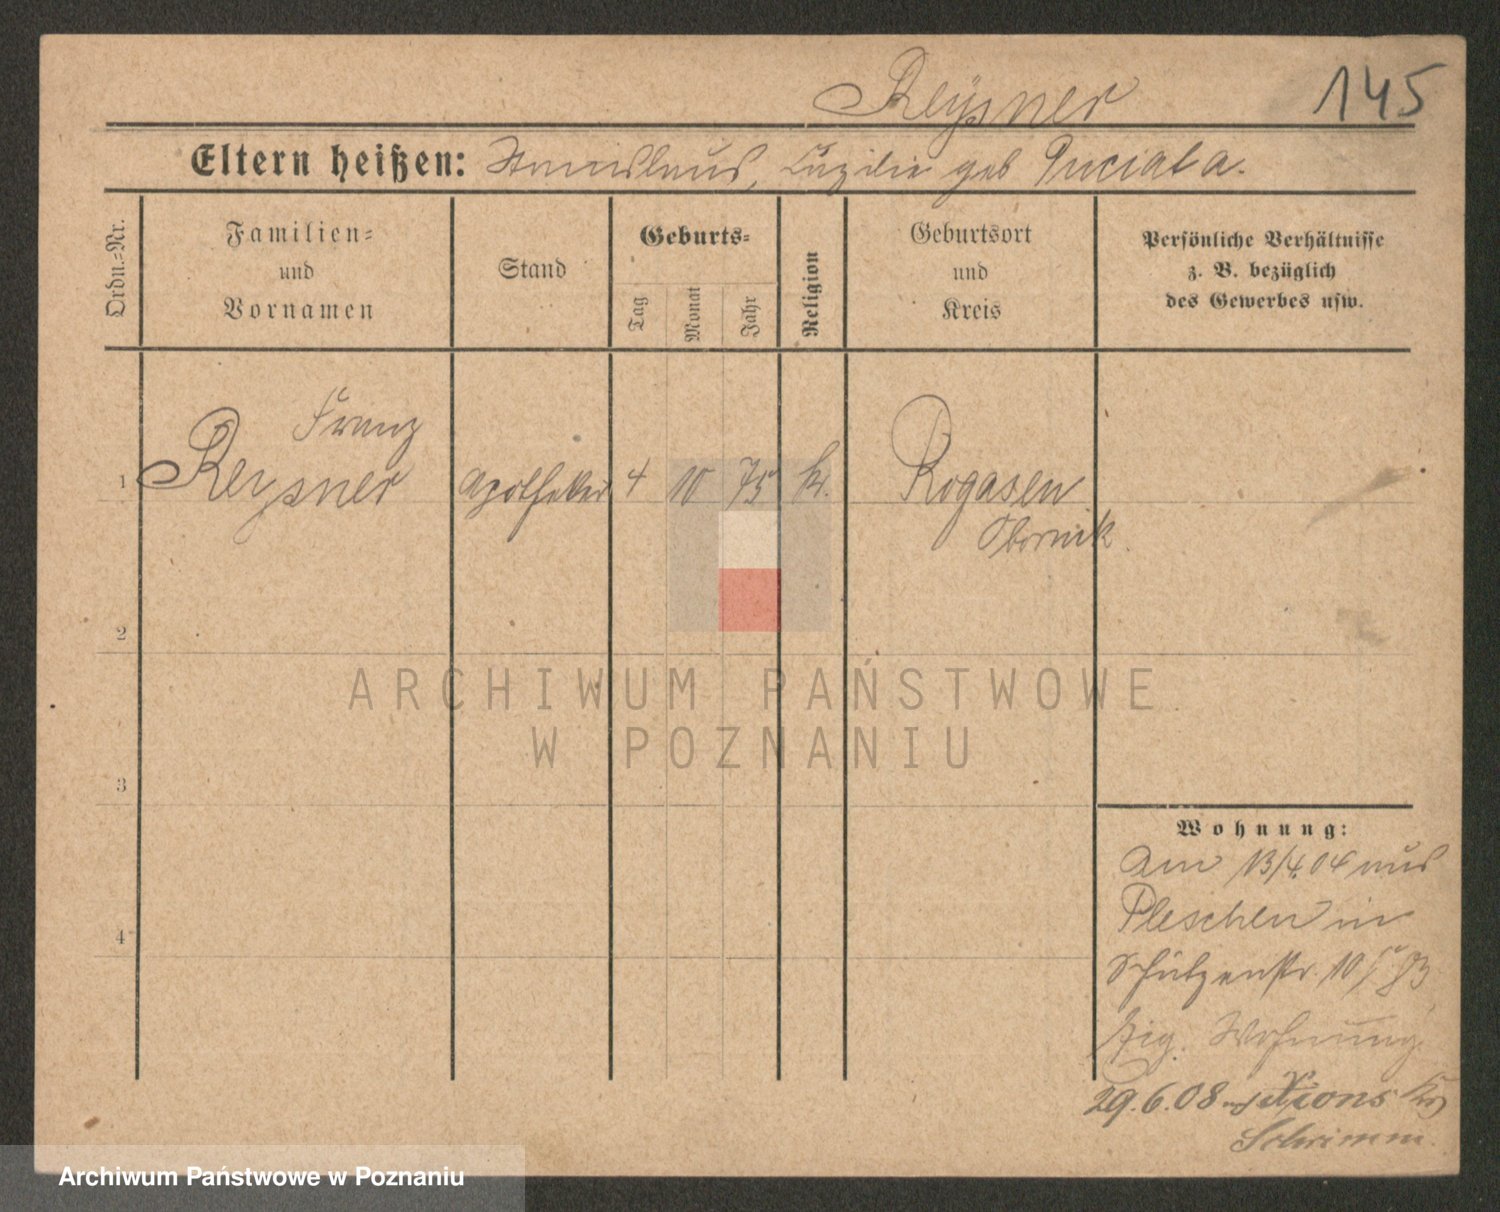 Reÿsner
145
Eltern heißen: Stanislaus, Cäzilie geb Puciata.
Ordn.-Nr.
Familien-
und
Vornamen
Stand
Geburts-
Tag
Monat
Jahr
Religion
Geburtsort
und
Kreis
Persönliche Verhältnisse
z. B. bezüglich
des Gewerbes usw.
Franz
1 Reysner Apotheker 4 10 75 k. Rogasen
Obornik
2
3
4
Wohnung:
Am 13/4.04 aus
Pleschen in
Schützenstr. 10
Wohnung
29.6.08 nach Xions Kr
Schrimm.
ARCHIWUM PAŃSTWOWE
W POZNANIU
Archiwum Państwowe w Poznaniu